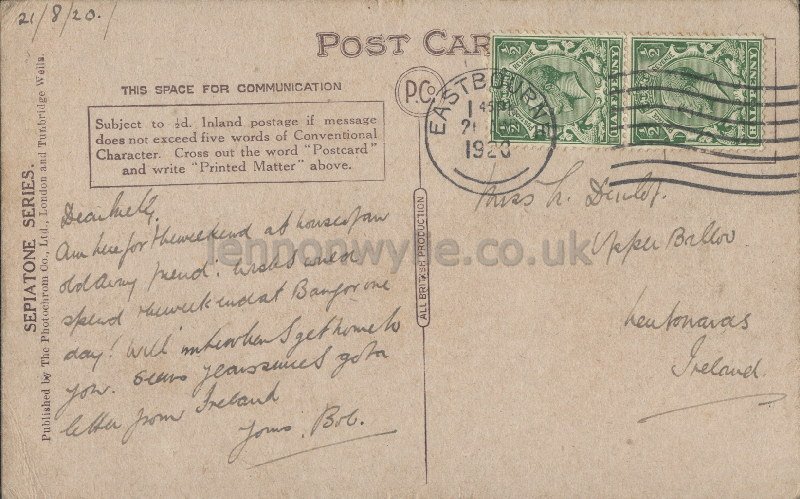 21/8/20.
POST CAR
THIS SPACE FOR COMMUNICATION
Subject to ½d. Inland postage if message
does not exceed five words of Conventional
Character. Cross out the word "Postcard"
and write "Printed Matter" above.
SEPIATONE SERIES.
Published by The Photochrom Co., Ltd., London and Tunbridge Wells.
P.Co
ALL BRITISH PRODUCTION
EASTBOURNE
1 45 PM
21
1920
½
½
HALFPENNY
HALFPENNY
Am here for the weekend at house of an
old Army friend. Wish I could
spend the weekend at Bangor one
day! Will write when I get home to
you. Seems years since I got a
letter from Ireland
Yours, Bob.
Miss L. Dunlop.
Upper Balloo
Ireland.
lennonwylie.co.uk